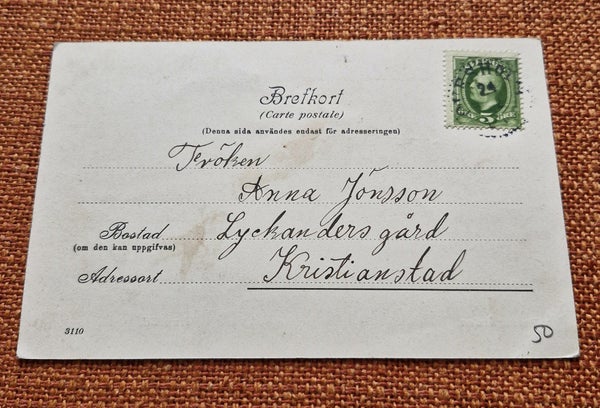 Brefkort
(Carte postale)
(Denna sida användes endast för adresseringen)
Fröken
Anna Jönsson
Bostad Lyckanders gård
(om den kan uppgifvas)
Adressort Kristianstad
3110
50
24
5